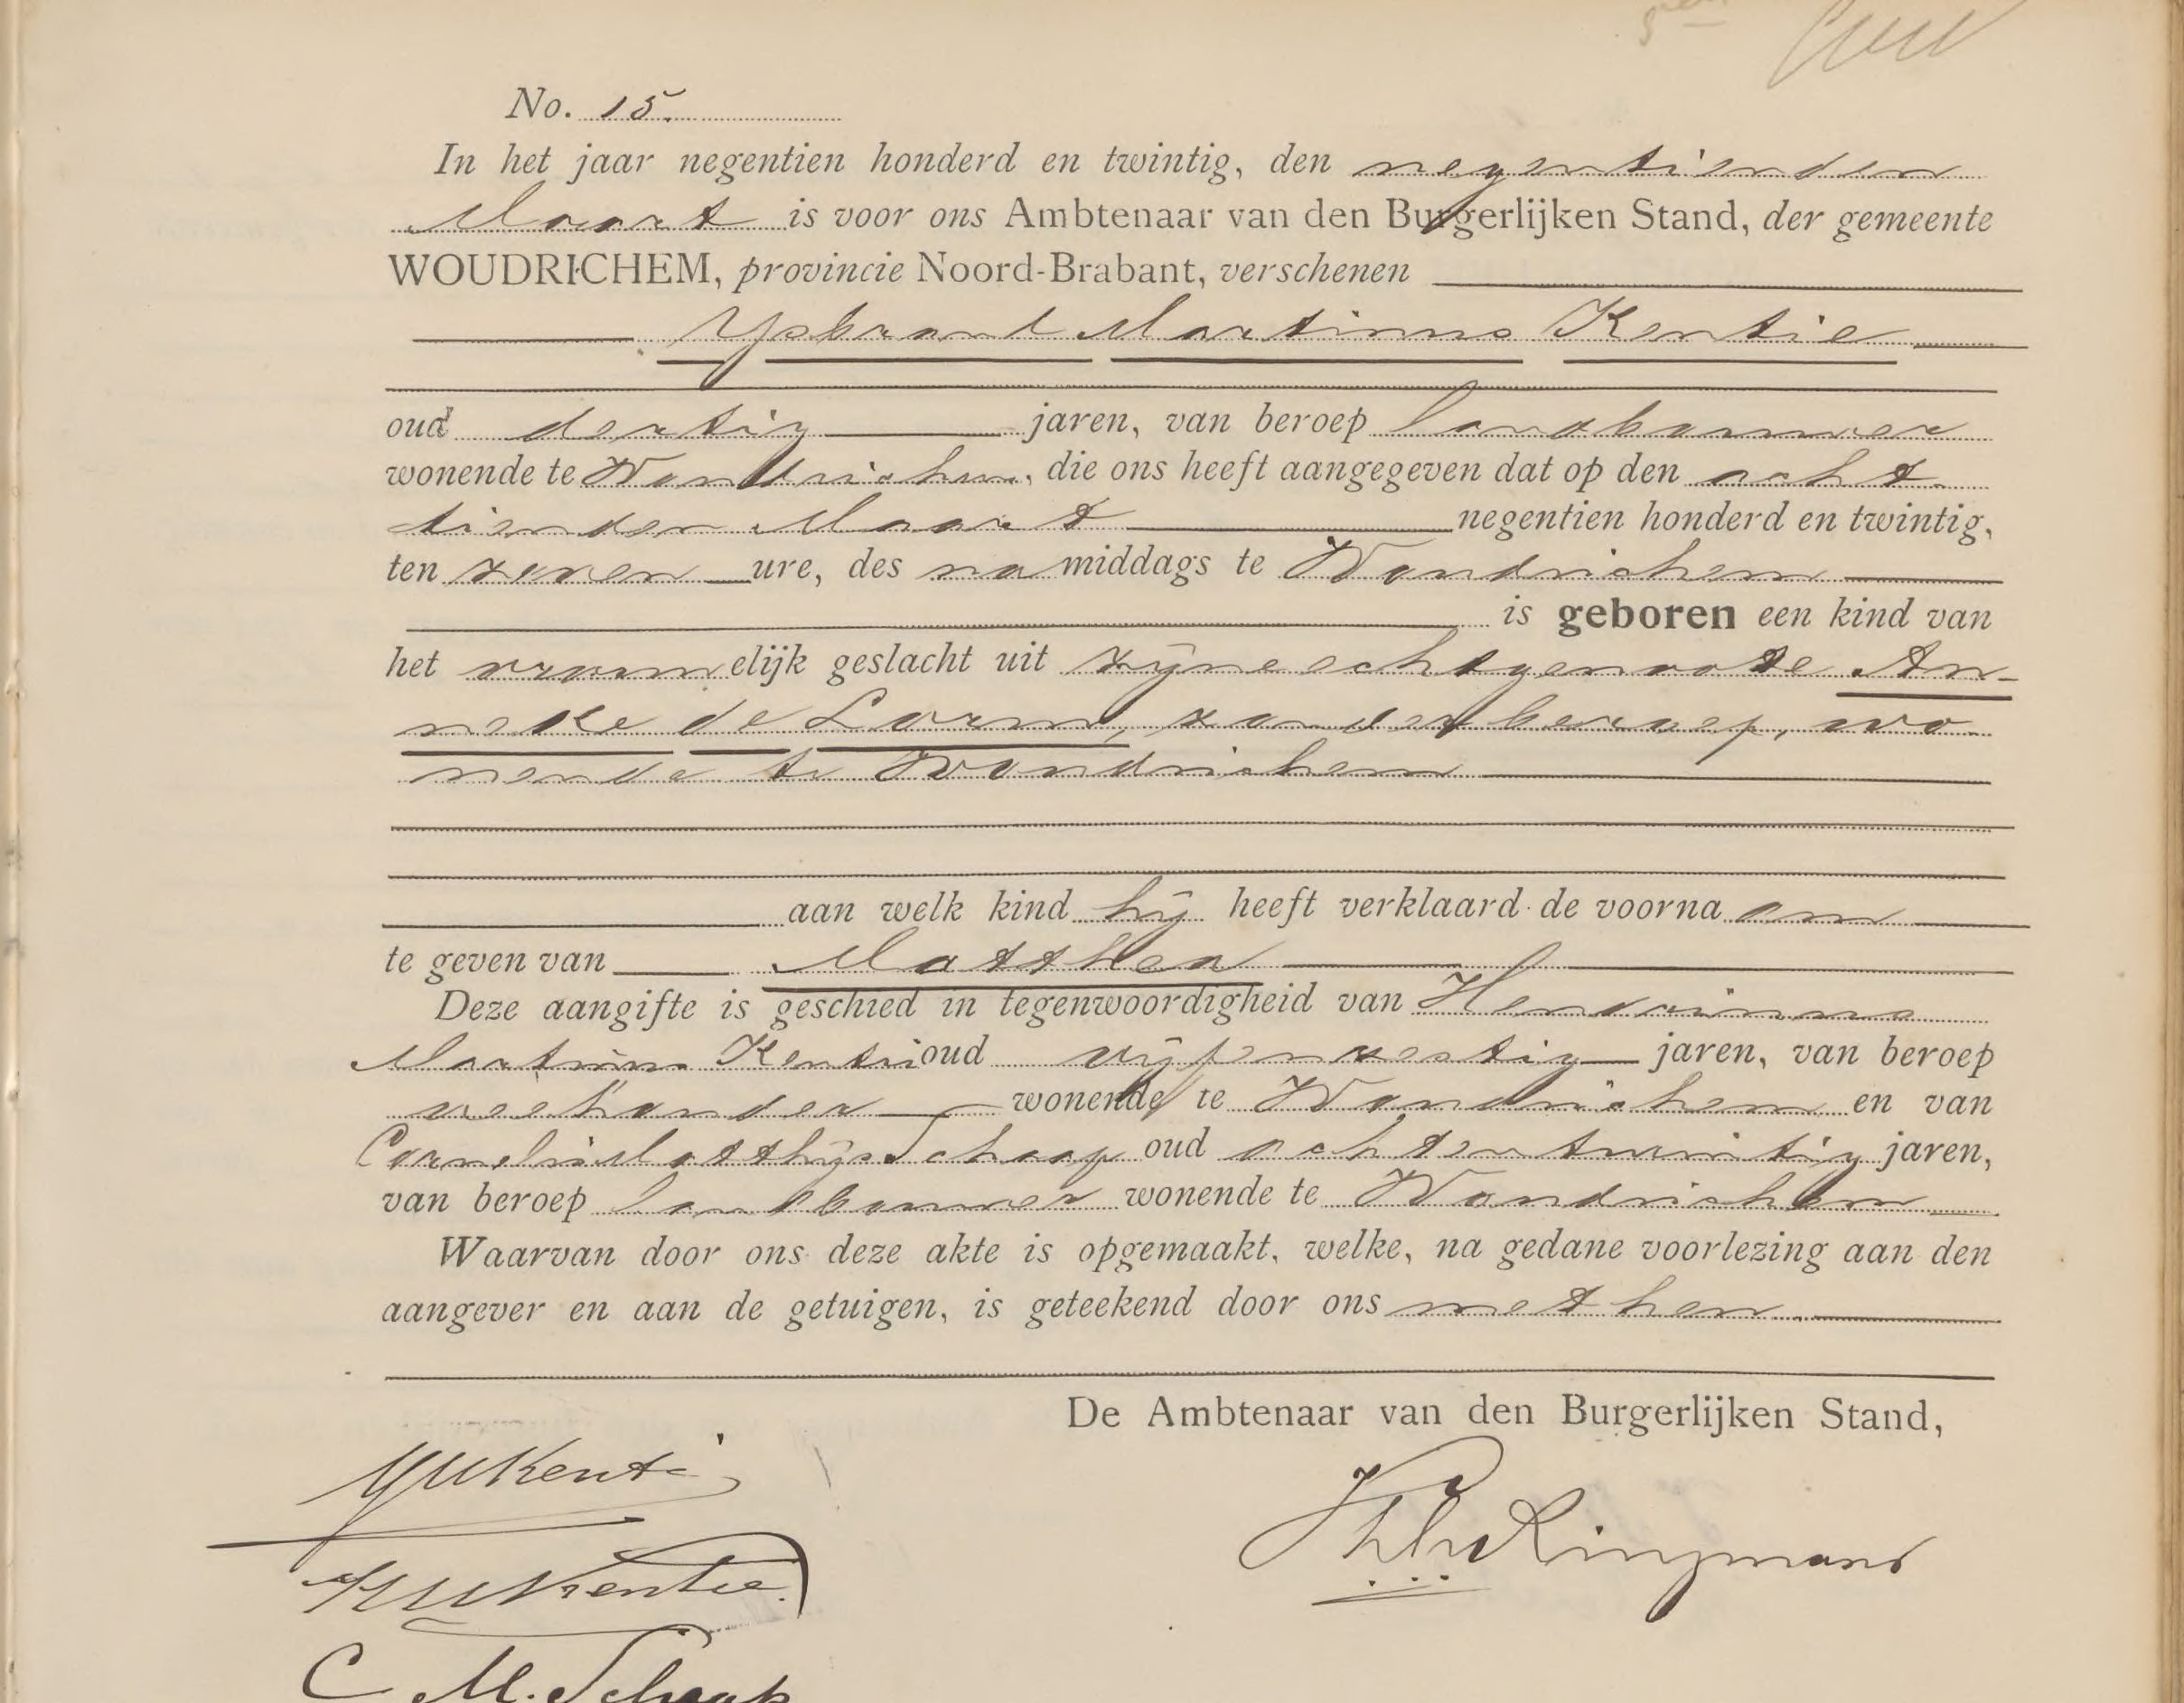 No. 15.
In het jaar negentien honderd en twintig, den negentienden
Maart is voor ons Ambtenaar van den Burgerlijken Stand, der gemeente
WOUDRICHEM, provincie Noord-Brabant, verschenen
Ysbrand Martinus Kentie
oud dertig jaren, van beroep landbouwer
wonende te Woudrichem, die ons heeft aangegeven dat op den acht
tienden Maart negentien honderd en twintig,
ten zeven ure, des na middags te Woudrichem
is geboren een kind van
het vrouwelijk geslacht uit zijne echtgenoote An-
neke de Lorm, zonder beroep, wo-
nende te Woudrichem
aan welk kind hij heeft verklaard de voornaam
te geven van Matthea
Deze aangifte is geschied in tegenwoordigheid van Hendrinus
Martinus Kentie oud vijfenzestig jaren, van beroep
veehouder wonende te Woudrichem en van
Cornelis Matthijs Schaap oud achtentwintig jaren,
van beroep landbouwer wonende te Woudrichem
Waarvan door ons deze akte is opgemaakt, welke, na gedane voorlezing aan den
aangever en aan de getuigen, is geteekend door ons met hen.
De Ambtenaar van den Burgerlijken Stand,
YMKentie
HMKentie
C M. Schaap